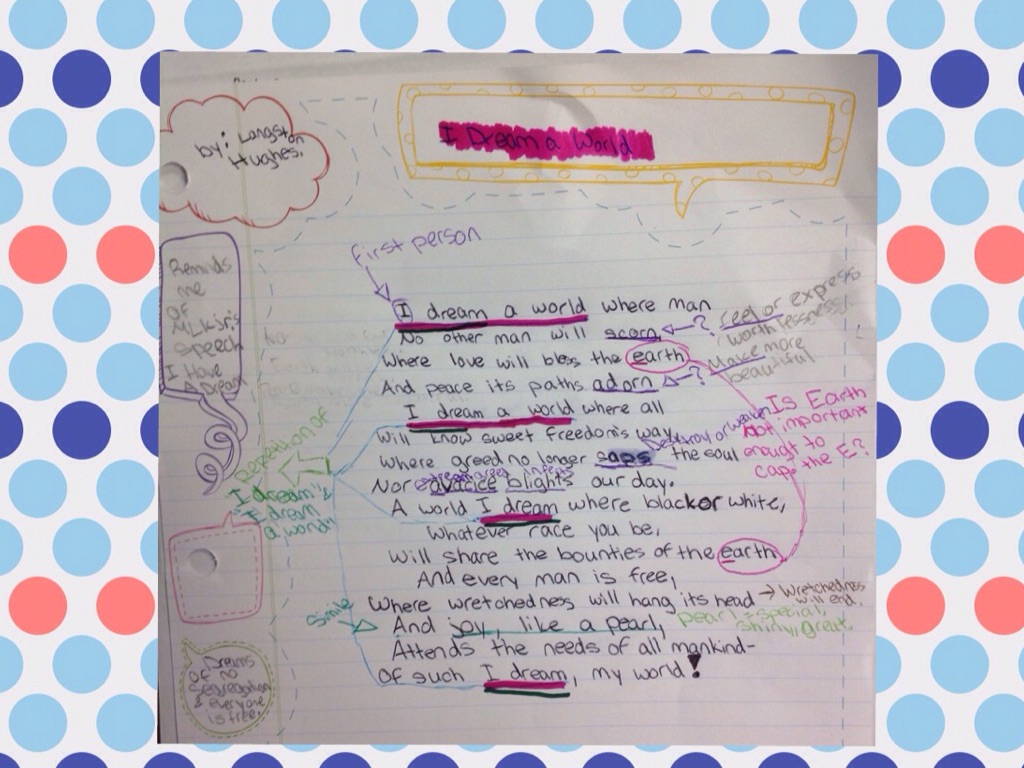 by: Langston
Hughes.
I Dream a World
First person
Reminds
me
OF
MLKjr's
Speech
I Have
A Dream
I dream a world where man
No other man will scorn, ?
feel or express
worthlessness
Where love will bless the earth
And peace its paths adorn ?
Make more
beautiful
I dream a world where all
Will know sweet freedom's way,
Where greed no longer saps the soul
Destroy or weaken
Nor avarice blights our day.
extreme greed infects
A world I dream where black or white,
Whatever race you be,
Will share the bounties of the earth
And every man is free,
Where wretchedness will hang its head
→ Wretchedness
will end.
And joy, like a pearl,
pearl = special,
shiny, great
Attends the needs of all mankind-
Of such I dream, my world!
Is Earth
not important
enough to
cap. the E?
Repetition of
"I dream" &
"I dream
a world"
Simile
Dreams
of no
Segregation
everyone
is free.